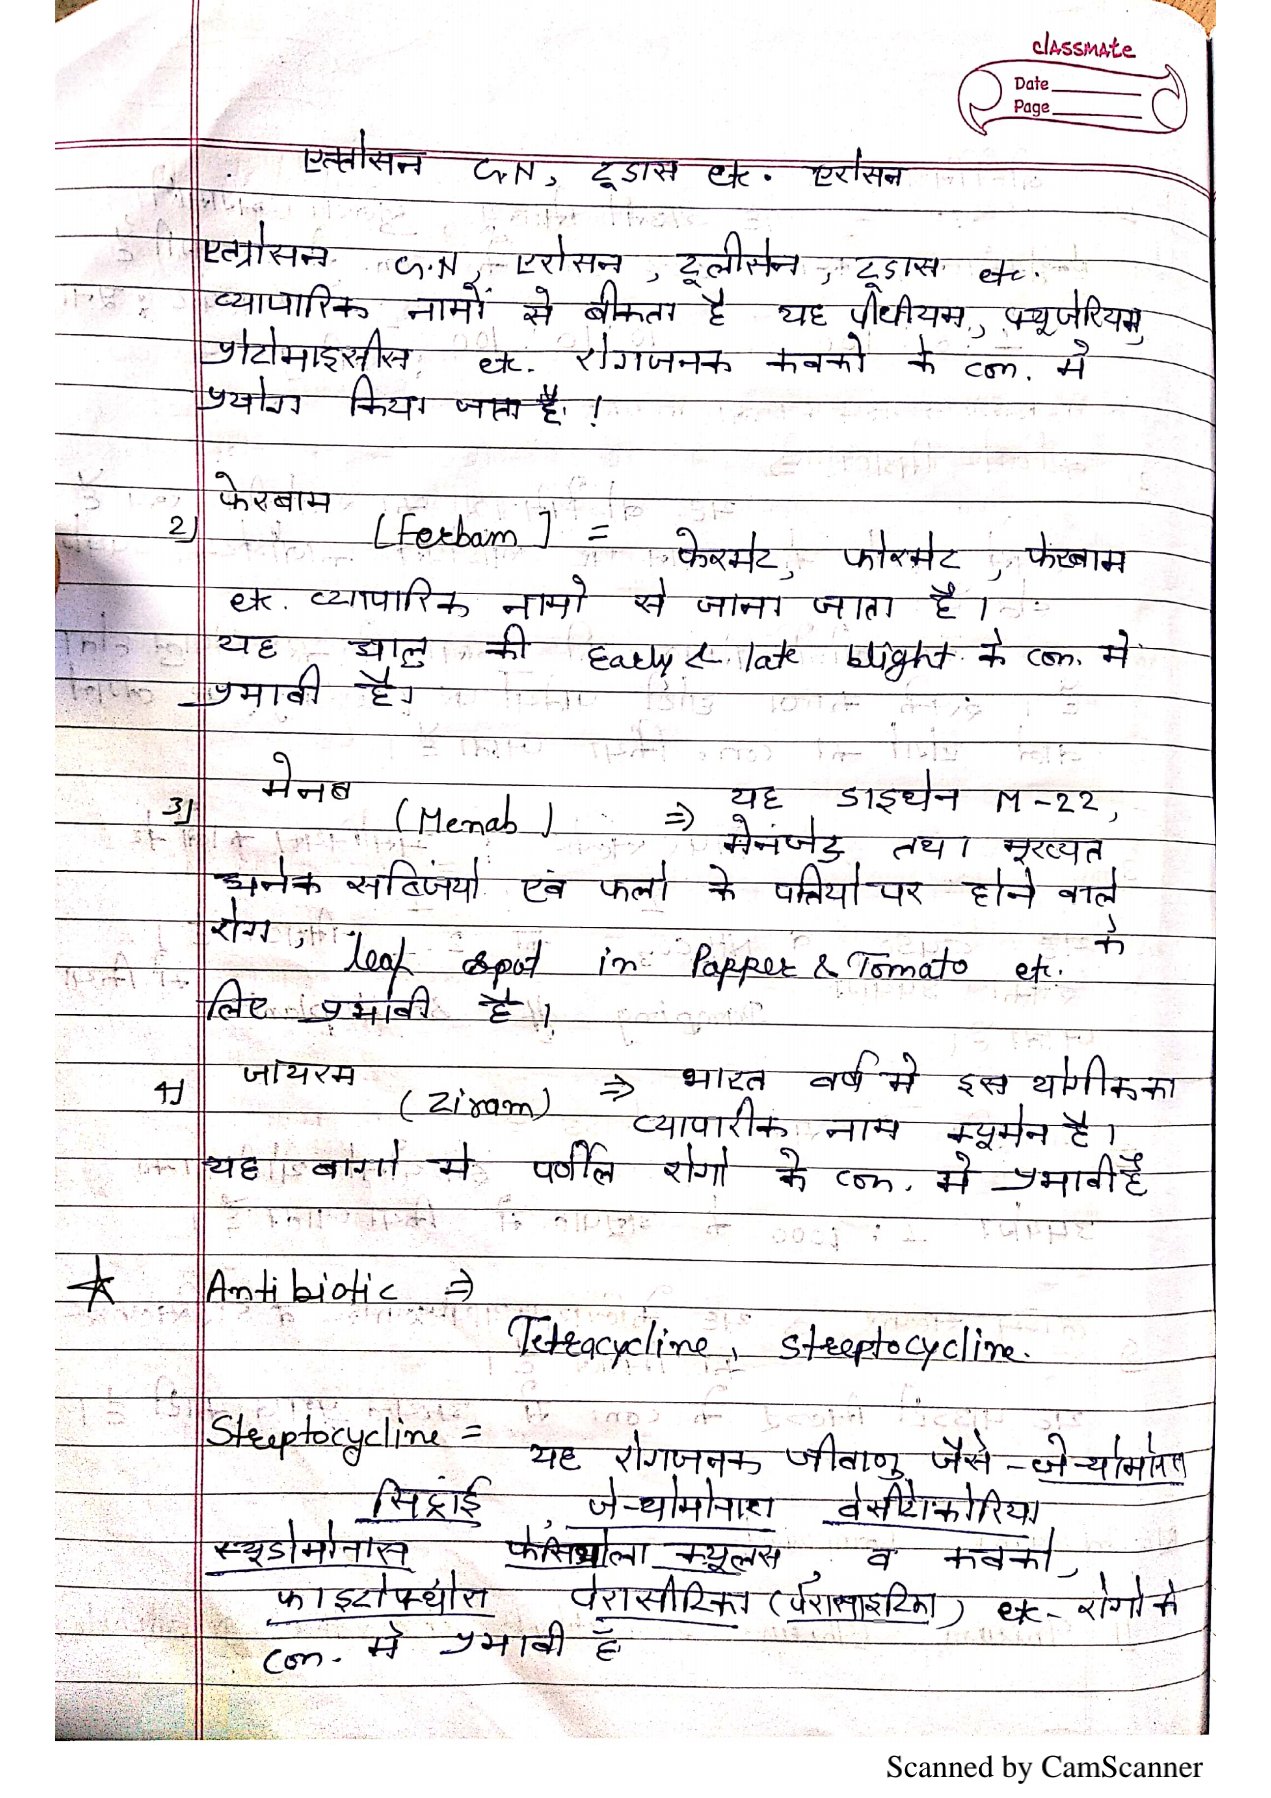 classmate
Date
Page
एत्लोसन G.N, टूडास etc. एरोसन
एत्ग्रोसन G.N, एरोसन, टूलीसेन, टूडास etc.
व्यापारिक नामों से बीकता है यह पीथीयम, फ्यूजेरियम,
प्रोटोमाइसीस etc. रोगजनक कवको के con. मे
प्रयोग किया जाता है।
फेरबाम
2) [Ferbam] = फेरमेट, फोरमेट, फेरबाम
etc. व्यापारिक नामो से जाना जाता है।
यह आलु की Early & late blight के con. मे
प्रभावी है।
मेनब
3) (Menab) ⇒ यह डाइथेन M-22,
मेनजेट तथा मूख्यत
अनेक सब्जियो एवं फलो के पतियो पर होने वाले
रोग, leaf spot in Papper & Tomato etc. के
लिए प्रभावी है।
4) जायरम (Ziram) ⇒ भारत वर्ष मे इस योगीक का
व्यापारीक नाम क्यूमेन है।
यह बागो मे पर्णील रोगो के con. मे प्रभावी है
☆ Antibiotic ⇒
Tetracycline, Streptocycline.
Streptocycline =
यह रोगजनक जीवाणु जैसे - जेन्थोमोनास
सिट्राई, जेन्थोमोनास वेसीटोकोरिया
स्यूडोमोनास फेसिओला क्यूलस, व कवको,
फाइटोफ्थोरा पेरासीटिका (पेरासाइटिका) etc - रोगो के
con. मे प्रभावी है
Scanned by CamScanner